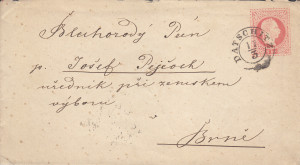 Blechorodý Pán
p. Josef Pejček
úředník při zemském
výboru
v
Brně
DATSCHITZ